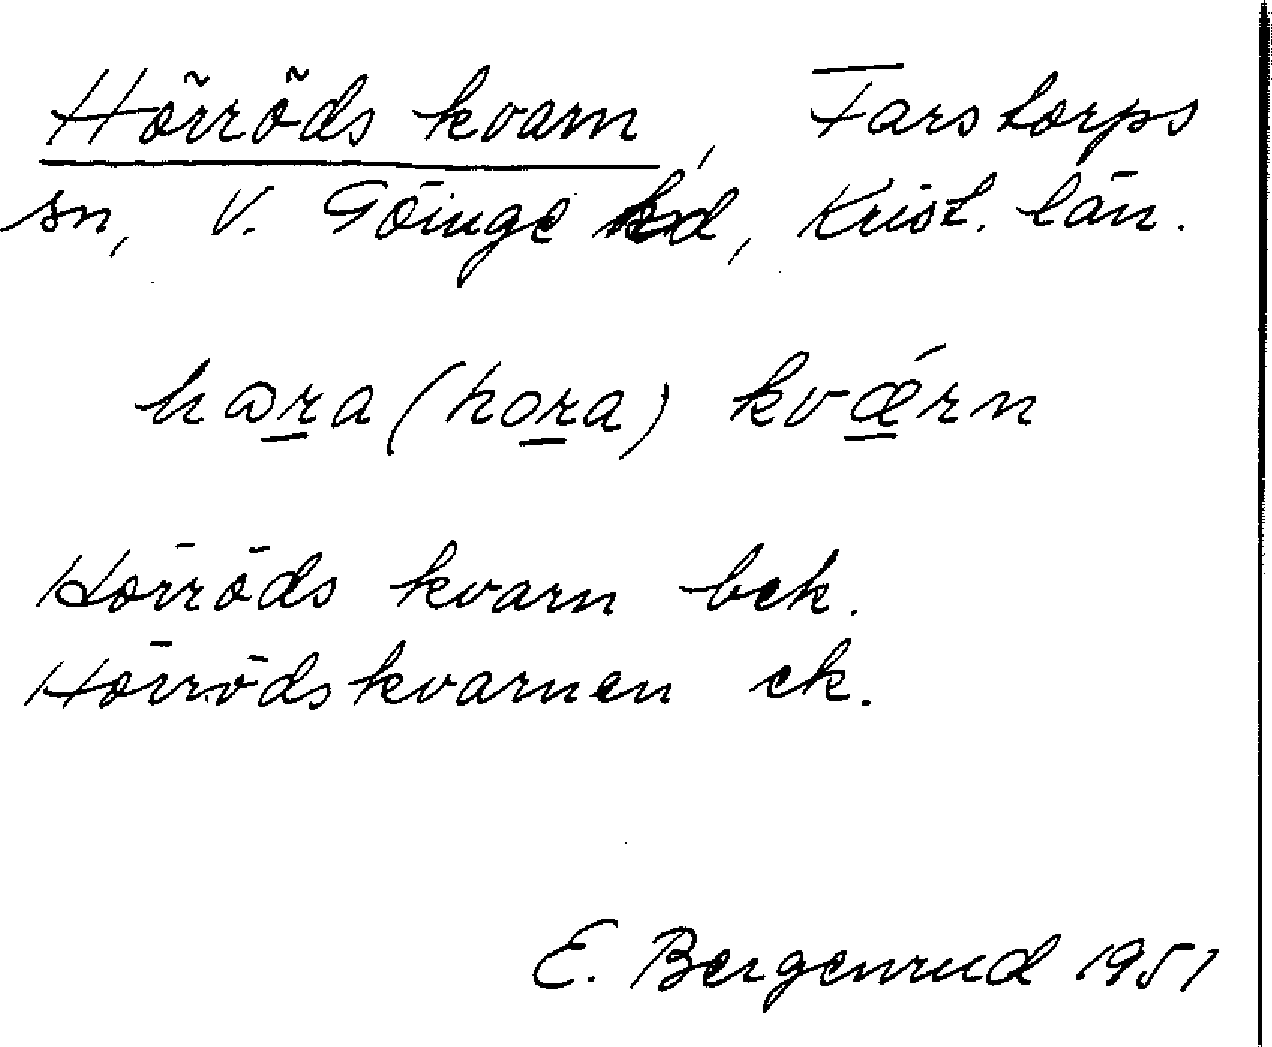 Hörröds kvarn, Farstorps
sn, V. Göinge hd, Krist. län.
hɷra (hora) kvǽrn
Hörröds kvarn bek.
Hörrödskvarnen ek.
E. Bergenrud 1951